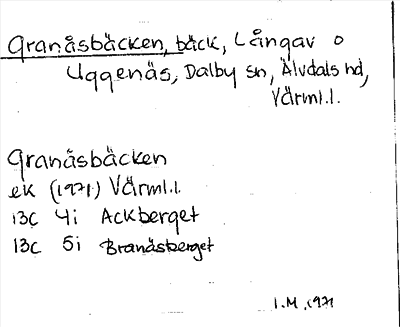 Granåsbäcken, bäck, Långav o
Uggenäs, Dalby sn, Älvdals hd,
Värml.l.
Granåsbäcken
ek (1971) Värml.l.
13C 4i Ackberget
13C 5i Branåsberget
I.M. 1971